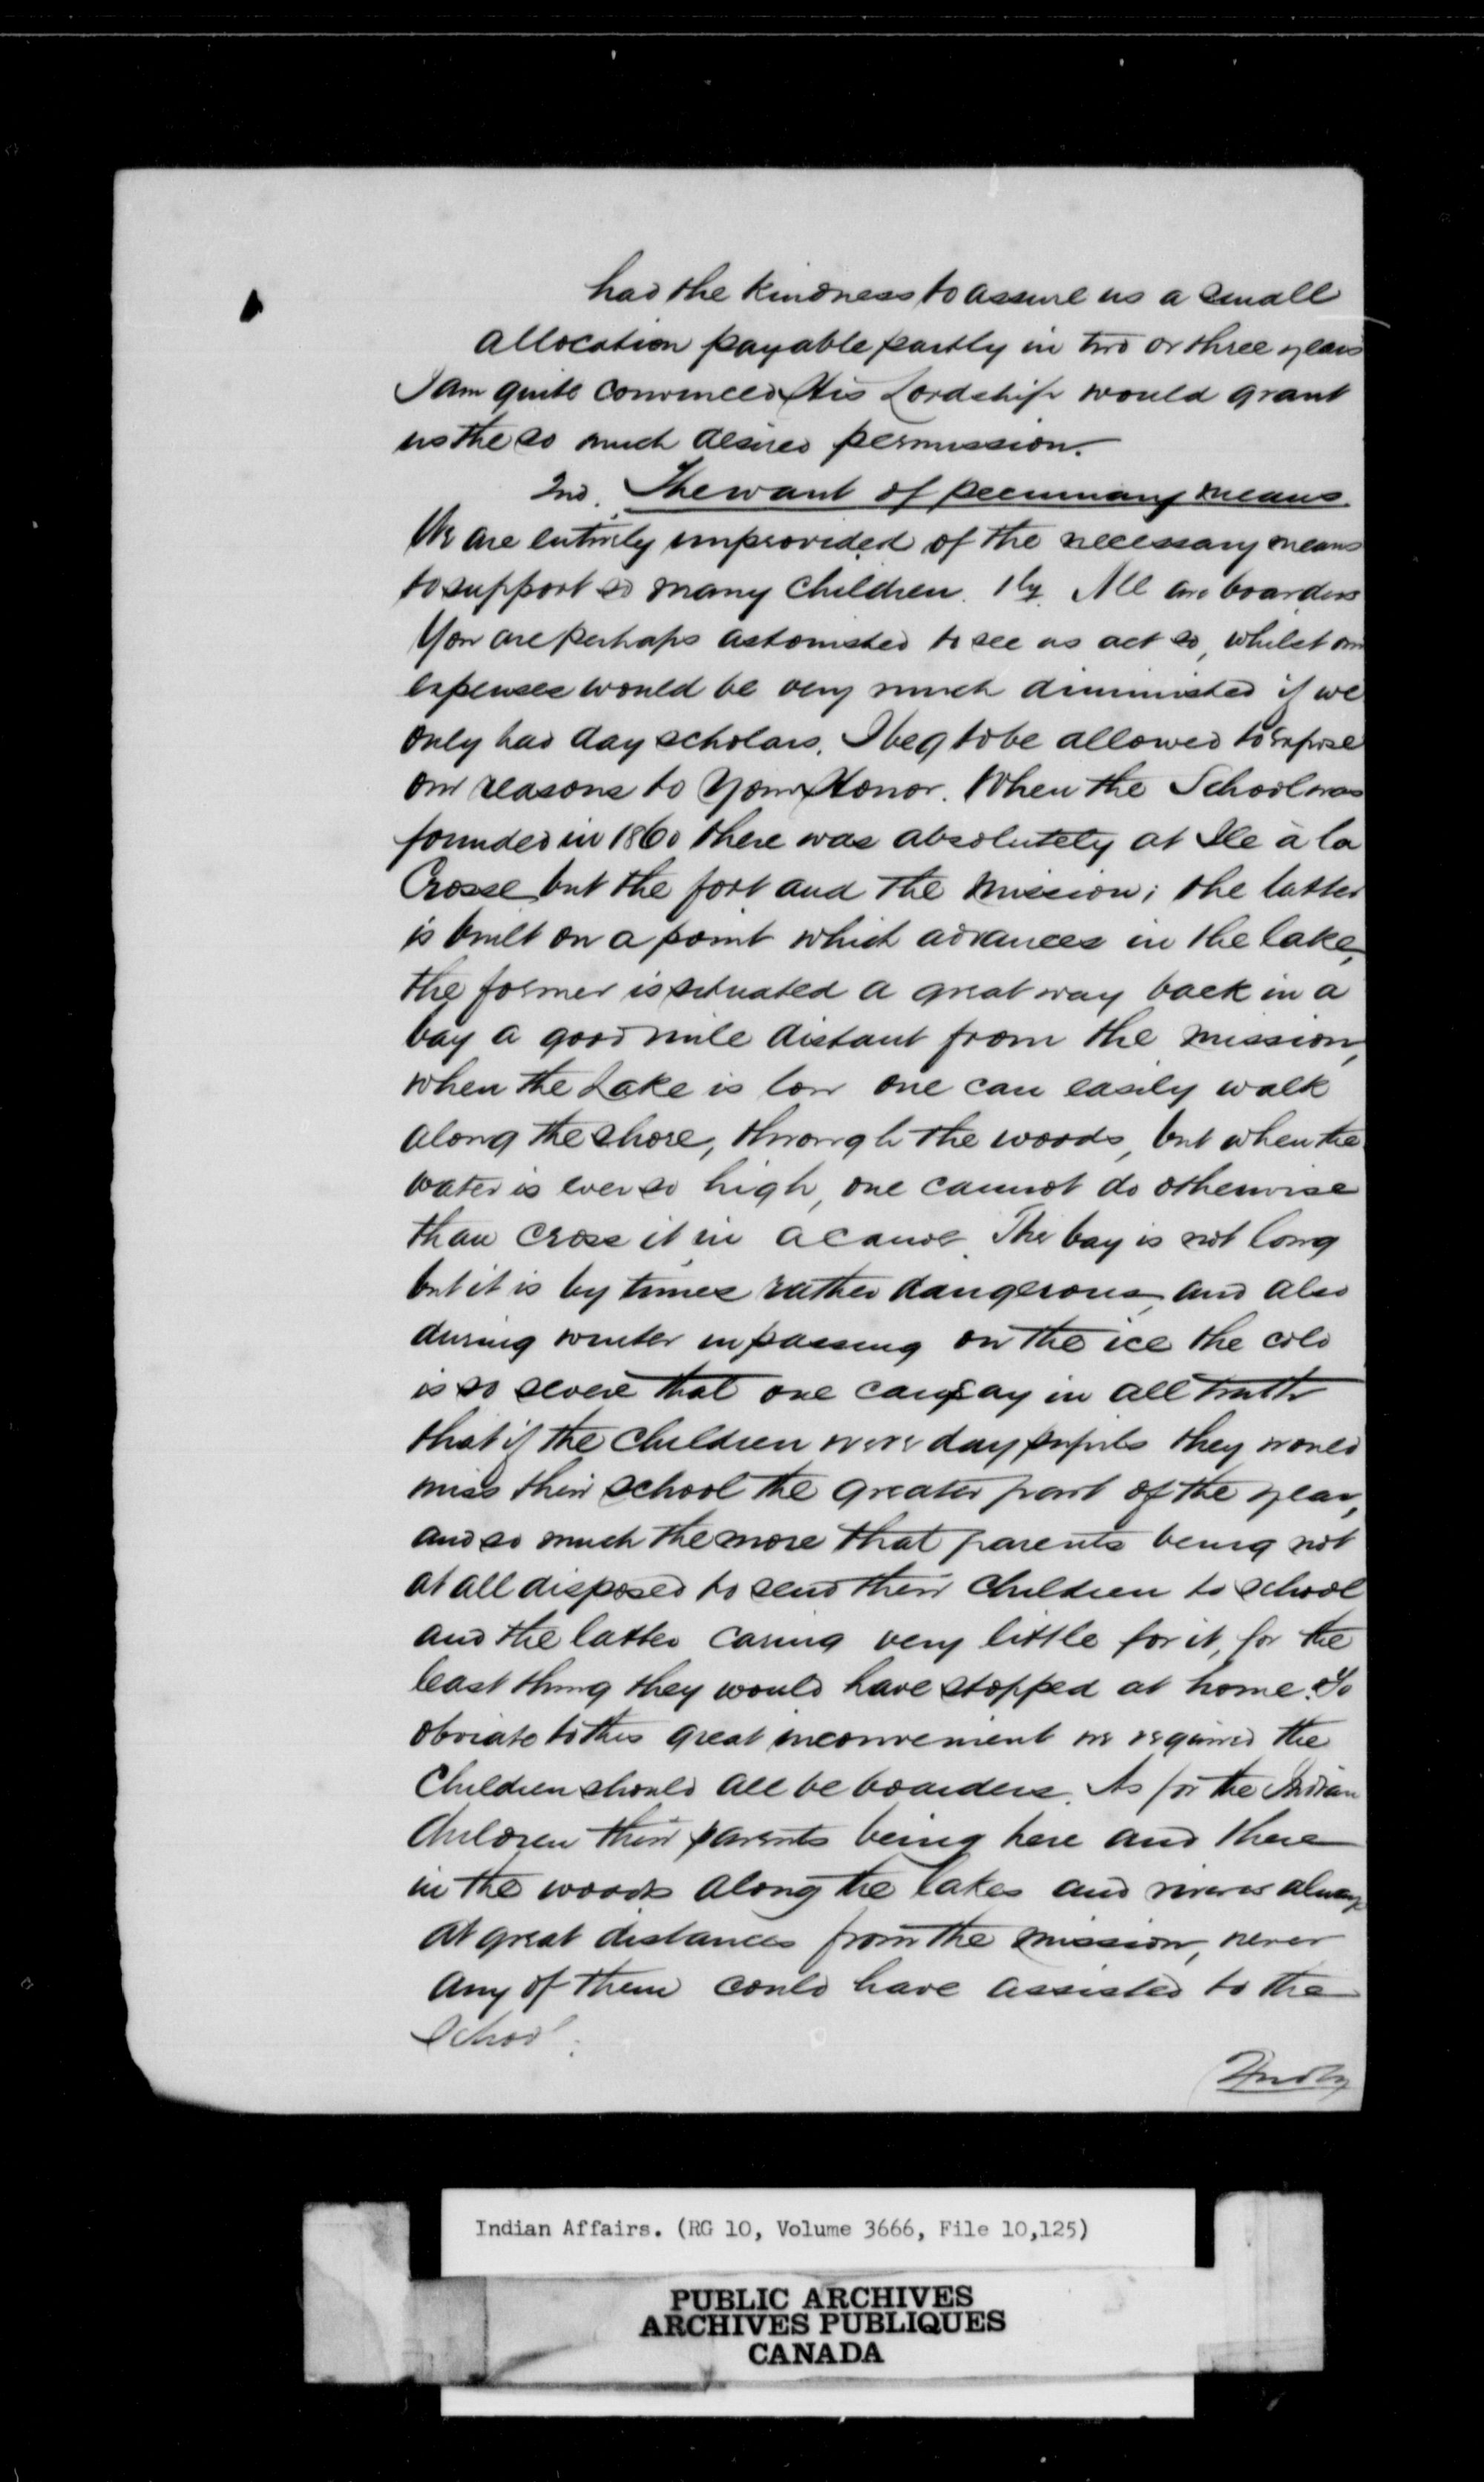 had the kindness to assure us a small
allocation payable partly in two or three years
I am quite convinced His Lordship would grant
us the so much desired permission.
2nd. The want of pecuniary means
We are entirely unprovided of the necessary means
to support so many children. 1ly. All are boarders
You are perhaps astonished to see us act so, whilst our
expenses would be very much diminished if we
only had day scholars. I beg to be allowed to expose
our reasons to Your Honor. When the School was
founded in 1860 there was absolutely at Ile à la
Crosse but the fort and the mission; the latter
is built on a point which advances in the lake,
the former is situated a great way back in a
bay a good mile distant from the mission,
when the Lake is low one can easily walk
along the shore, through the woods, but when the
water is ever so high, one cannot do otherwise
than cross it in a canoe. The bay is not long
but it is by times rather dangerous, and also
during winter in passing on the ice the cold
is so severe that one can say in all truth
that if the children were day pupils they would
miss their school the greater part of the year,
and so much the more that parents being not
at all disposed to send their children to school
and the latter caring very little for it, for the
least thing they would have stopped at home. To
obviate to this great inconvenient we required the
Children should all be boarders. As for the Indian
Children their parents being here and there
in the woods along the lakes and rivers always
at great distances from the mission, never
any of them could have assisted to the
School.
2ndly
Indian Affairs. (RG 10, Volume 3666, File 10,125)
PUBLIC ARCHIVES
ARCHIVES PUBLIQUES
CANADA